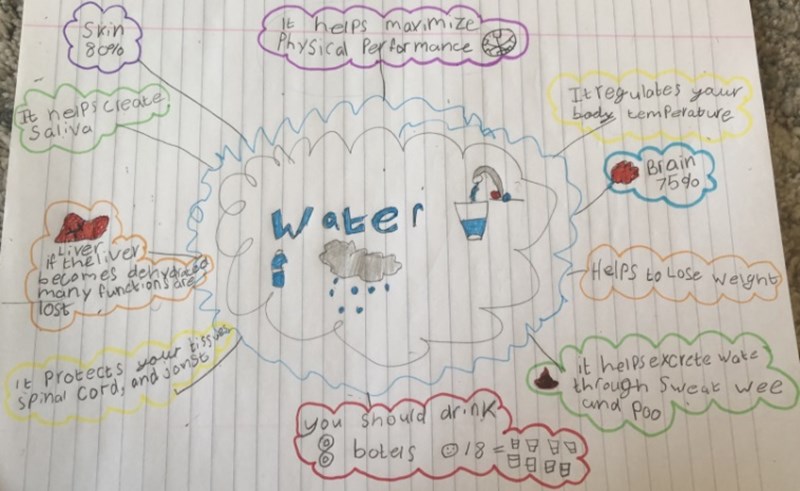 Skin
80%
It helps maximize
Physical Performance
It regulates your
body temperature
It helps create
Saliva
Brain
75%
Water
Liver
if the liver
becomes dehydrated
many functions are
lost
Helps to Lose weight
it Protects your tissues
Spinal Cord, and jonst
it helps excrete wate
through Sweat wee
and Poo
you should drink
8 botels 18 =